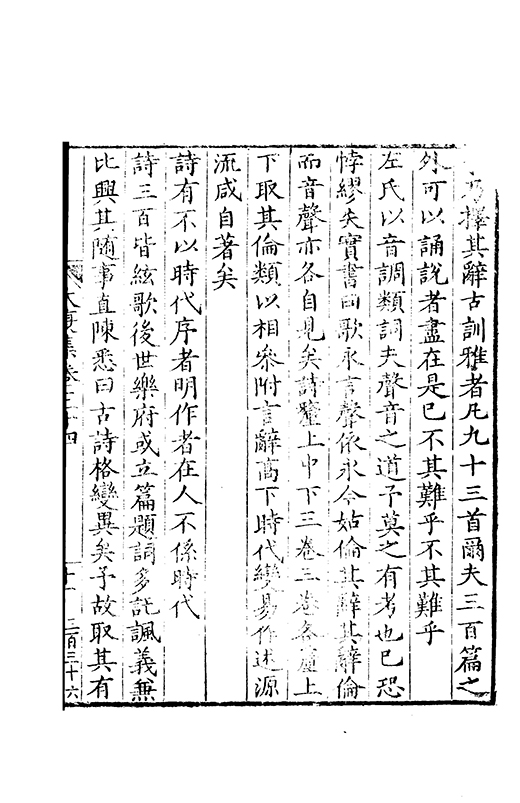 乃擇其辭古訓雅者凡九十三首爾夫三百篇之
外可以誦說者盡在是已不其難乎不其難乎
左氏以音調類詞夫聲音之道予莫之有考也已恐
悖繆失實書曰歌永言聲依永今姑倫其辭其辭倫
而音聲亦各自見矣詩壐上中下三卷三卷各釐上
下取其倫類以相參附言辭高下時代變易作述源
流咸自著矣
詩有不以時代序者明作者在人不係時代
詩三百皆絃歌後世樂府或立篇題詞多託諷義兼
比興其隨事直陳悉曰古詩格變異矣予故取其有
大復集卷三十四
十一
二百三十六